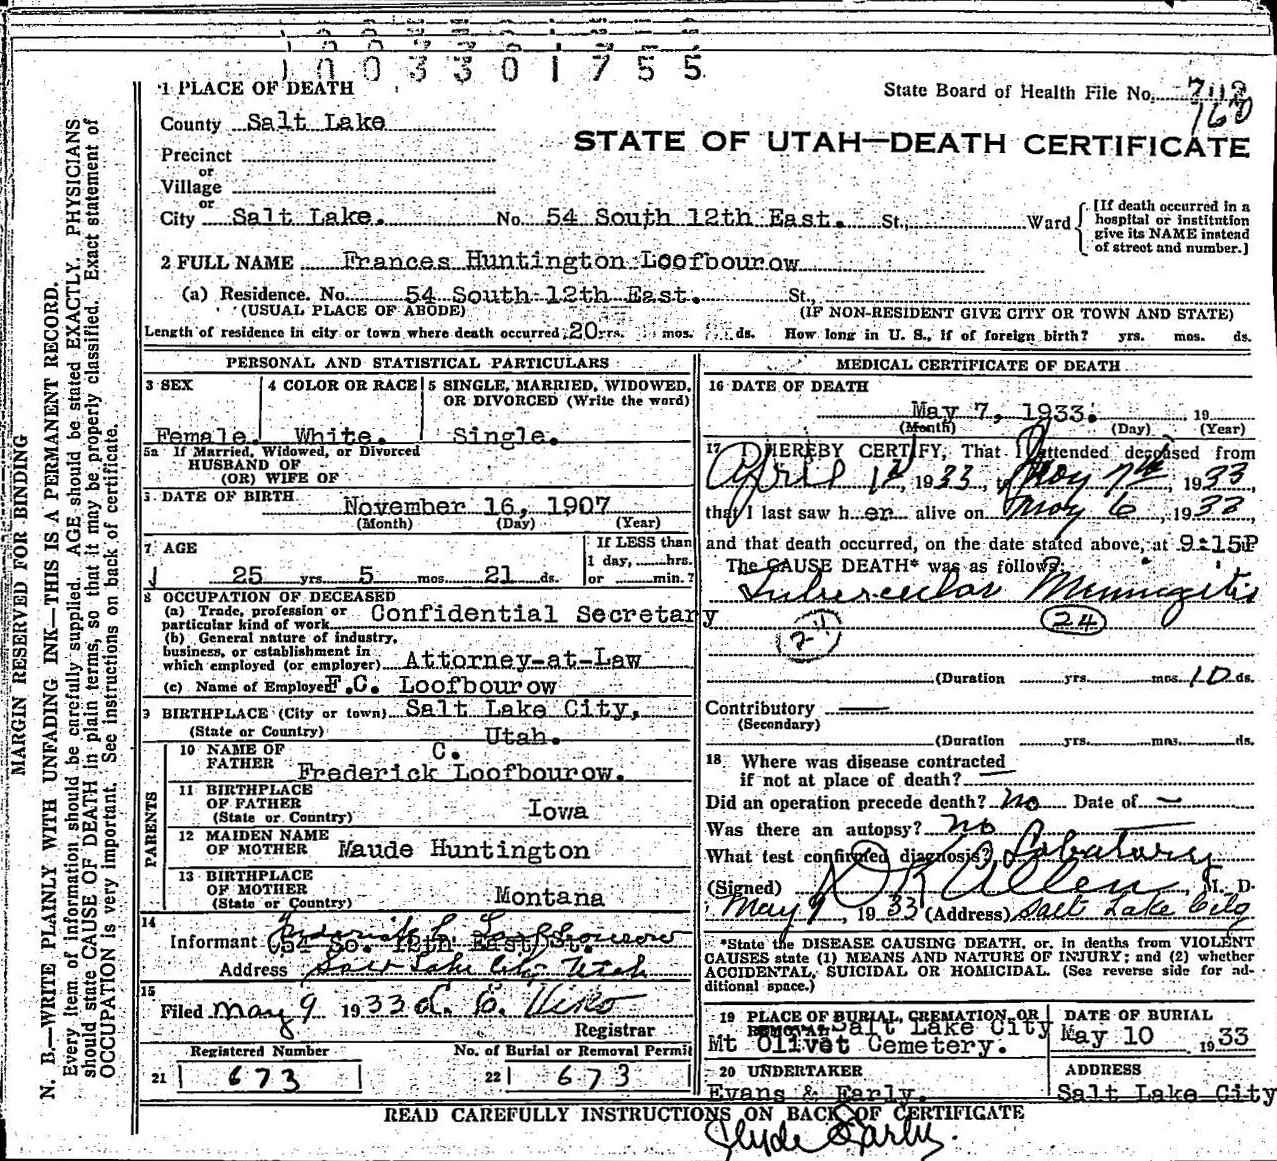 1003301755
1 PLACE OF DEATH
State Board of Health File No. 
760
County Salt Lake
STATE OF UTAH—DEATH CERTIFICATE
Precinct
or
Village
or
City Salt Lake. No. 54 South 12th East. St., Ward
[If death occurred in a
hospital or institution
give its NAME instead
of street and number.]
2 FULL NAME Frances Huntington Loofbourow
(a) Residence. No. 54 South 12th East. St.,
(USUAL PLACE OF ABODE) (IF NON-RESIDENT GIVE CITY OR TOWN AND STATE)
Length of residence in city or town where death occurred 20 yrs. mos. ds. How long in U. S., if of foreign birth? yrs. mos. ds.
PERSONAL AND STATISTICAL PARTICULARS
3 SEX
Female.
4 COLOR OR RACE
White.
5 SINGLE, MARRIED, WIDOWED,
OR DIVORCED (Write the word)
Single.
5a If Married, Widowed, or Divorced
HUSBAND OF
(OR) WIFE OF
DATE OF BIRTH
November 16, 1907
(Month) (Day) (Year)
7 AGE
25 yrs. 5 mos. 21 ds.
If LESS than
1 day, hrs.
or min.?
8 OCCUPATION OF DECEASED
(a) Trade, profession or
particular kind of work Confidential Secretary
(b) General nature of industry,
business, or establishment in
which employed (or employer) Attorney-at-Law
(c) Name of Employer F.C. Loofbourow
9 BIRTHPLACE (City or town) Salt Lake City,
(State or Country) Utah.
PARENTS
10 NAME OF
FATHER
C.
Frederick Loofbourow.
11 BIRTHPLACE
OF FATHER
(State or Country)
Iowa
12 MAIDEN NAME
OF MOTHER Maude Huntington
13 BIRTHPLACE
OF MOTHER
(State or Country) Montana
14
Informant Frederick C. Loofbourow
(54 So. 12th East St.
Address Salt Lake City, Utah
15
Filed May 9 1933
Registrar
Registered Number
21 673
No. of Burial or Removal Permit
22 673
MEDICAL CERTIFICATE OF DEATH
16 DATE OF DEATH
May 7, 1933. 19
(Month) (Day) (Year)
17 I HEREBY CERTIFY, That I attended deceased from
April 1st, 1933, to May 7th, 1933
that I last saw her alive on May 6, 1933,
and that death occurred, on the date stated above, at 9:15P
The CAUSE DEATH* was as follows:
Tubercular Meningitis
24
24
(Duration yrs. mos. 10 ds.
Contributory
(Secondary)
(Duration yrs. mos. ds.
18 Where was disease contracted
if not at place of death?
Did an operation precede death? No Date of —
Was there an autopsy? no
What test confirmed diagnosis? Labatory
(Signed) D K Allen, M. D.
May 9, 1933 (Address) Salt Lake City
*State the DISEASE CAUSING DEATH, or, in deaths from VIOLENT
CAUSES state (1) MEANS AND NATURE OF INJURY; and (2) whether
ACCIDENTAL, SUICIDAL OR HOMICIDAL. (See reverse side for ad-
ditional space.)
19 PLACE OF BURIAL, CREMATION, OR
REMOVAL Salt Lake City
Mt Olivet Cemetery.
DATE OF BURIAL
May 10 1933
20 UNDERTAKER
Evans & Early.
ADDRESS
Salt Lake City
READ CAREFULLY INSTRUCTIONS ON BACK OF CERTIFICATE
Clyde Early.
MARGIN RESERVED FOR BINDING
N. B.—WRITE PLAINLY WITH UNFADING INK—THIS IS A PERMANENT RECORD.
Every item of information should be carefully supplied. AGE should be stated EXACTLY. PHYSICIANS
should state CAUSE OF DEATH in plain terms, so that it may be properly classified. Exact statement of
OCCUPATION is very important. See instructions on back of certificate.